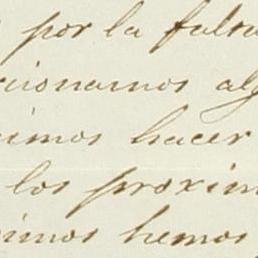 por la falta
cionamos alg
imos hacer
los proxim
imos hemos